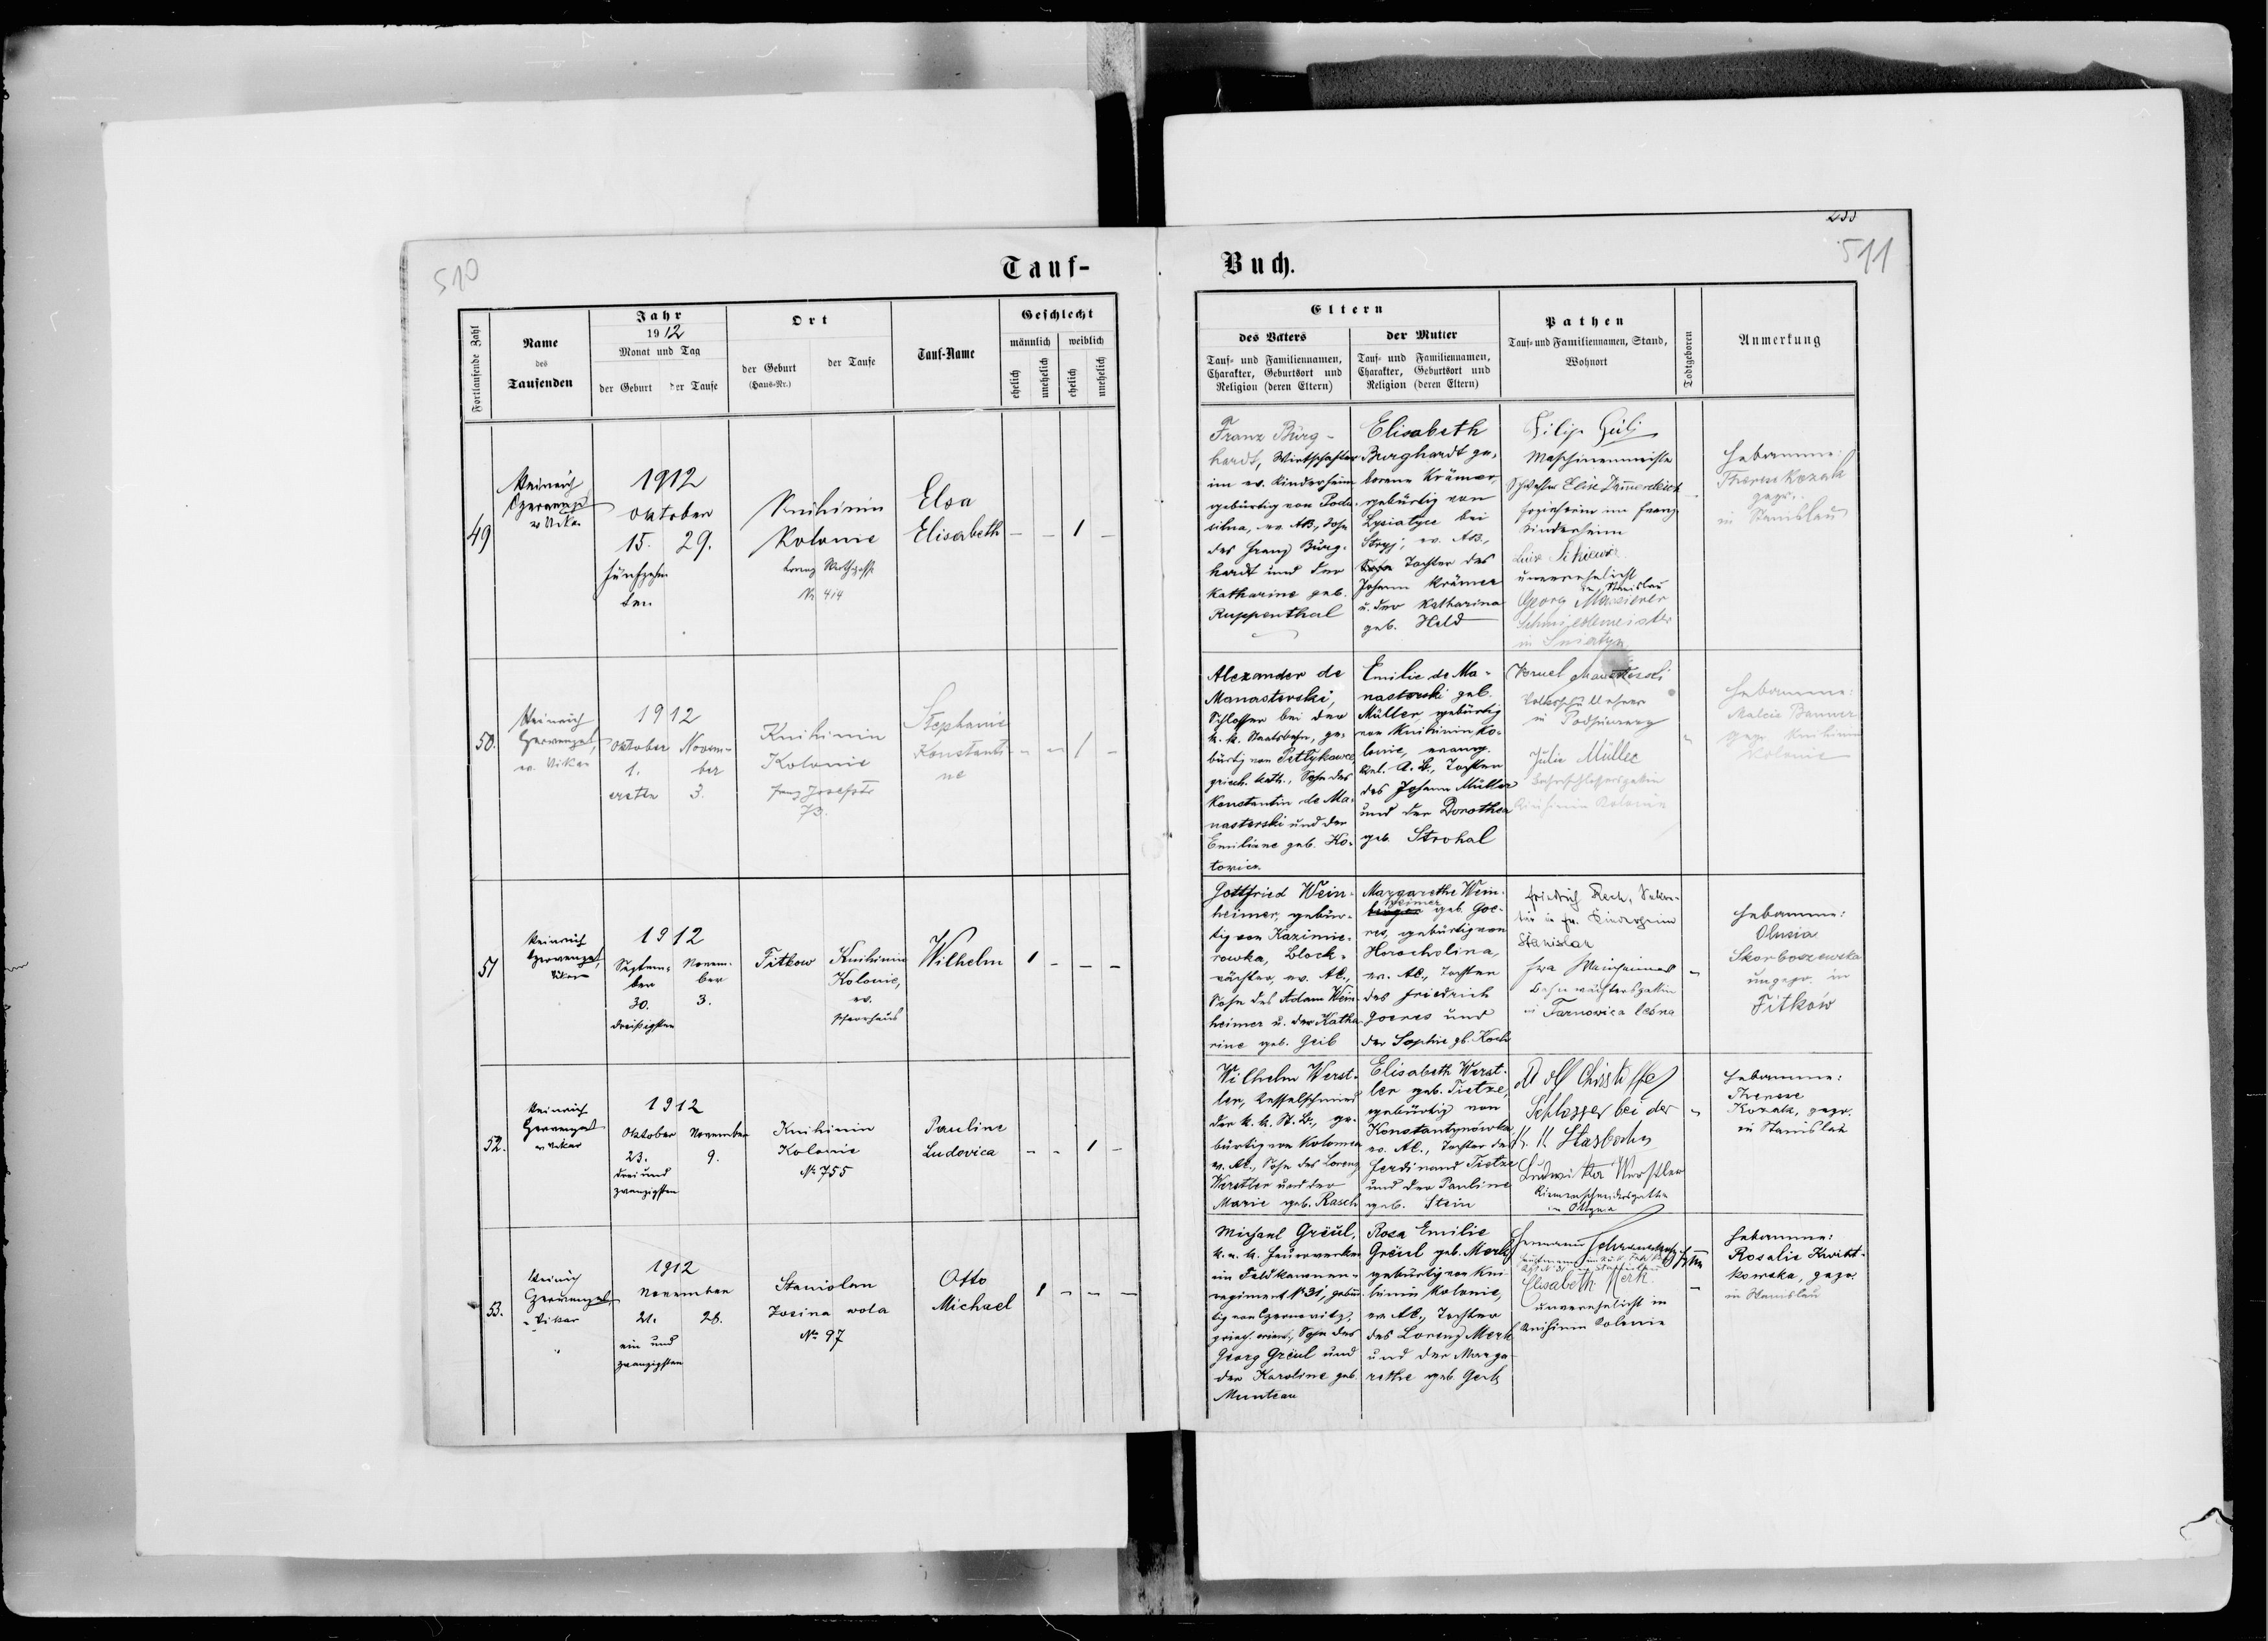 510
Tauf-
Buch.
511
Fortlaufende Zahl
Name
des
Taufenden
Jahr
1912
Monat und Tag
der Geburt
der Taufe
Ort
der Geburt
(Haus-Nr.)
der Taufe
Tauf-Name
Geschlecht
männlich
weiblich
ehelich
unehelich
ehelich
unehelich
Eltern
des Vaters
Tauf- und Familiennamen,
Charakter, Geburtsort und
Religion (deren Eltern)
der Mutter
Tauf- und Familiennamen,
Charakter, Geburtsort und
Religion (deren Eltern)
Pathen
Tauf- und Familiennamen, Stand,
Wohnort
Todtgeboren
Anmerkung
49
Heinrich
Czerwenzel
ev. Vikar
1912
Oktober
15. 29.
fünfzehn
ten
Knihinin
Kolonie
Nr. 414
Elsa
Elisabeth
- - 1 -
Franz Burg-
hardt, Wirtschafter
im ev. Kinderheim
gebürtig von
ev. AB., Sohn
des Franz Burg-
hardt und der
Katharine geb.
Ruppenthal
Elisabeth
Burghardt ge-
borene Krämer,
gebürtig von
Lysiatyce bei
Stryj, ev. AB.,
Tochter des
Johann Krämer
u. der Katharina
geb. Held
Filip
Maschinenmeister
Schwester Elise
Kinderheim
Luise
unverehelicht
in Stanislau
Georg
Schmiedemeister
in Sniatyn
Hebamme:
Therese Kozak
gepr.
in Stanislau
50.
Heinrich
Czerwenzel,
ev. Vikar
1912
Oktober Novem-
1. ber
ersten 3.
Knihinin
Kolonie
Franz Josefstr.
73.
Stephanie
Konstanti-
ne
- - 1 -
Alexander de
Manasterski,
Schlosser bei der
k. k. Staatsbahn, ge-
bürtig von Petlykowce,
griech. kath., Sohn des
Konstantin de Ma-
nasterski und der
Emiliane geb. Ko-
towicz.
Emilie de Ma-
nasterski geb.
Müller, gebürtig
von Knihinin, Ko-
lonie, evang.
Rel. A. B., Tochter
des Johann Müller
und der Dorothea
geb. Strohal
Kornel
Volksschullehrer
in
Julie Müller
Knihinin Kolonie
Hebamme:
Malcie
gepr. Knihinin
Kolonie
51
Heinrich
Czerwenzel,
Vikar
1912
Septem- Novem-
ber ber
30. 3.
dreißigsten
Fitkow
Knihinin
Kolonie,
ev.
Pfarrhaus
Wilhelm
1 - - -
Gottfried Wein-
heimer, gebür-
tig von Kazimie-
rowka, Block-
wächter, ev. AC.,
Sohn des Adam Wein-
heimer u. der Katha-
rine geb. Geib
Margarethe Wein-
heimer geb. Goe-
res, gebürtig von
Horocholina,
ev. AC., Tochter
des Friedrich
Goeres und
der Sophie gb. Koch
Friedrich Rech, Sekre-
tär in ev. Kinderheim
Stanislau
Eva Weinheimer
Bahnwächtersgattin
in Tarnovica lesna
Hebamme:
Olusia
Skorboszewska
ungepr. in
Fitków
52.
Heinrich
Czerwenzel
ev. Vikar
1912
Oktober November
23. 9.
drei und
zwanzigsten
Knihinin
Kolonie
No 755
Pauline
Ludovica
- - 1 -
Wilhelm Werst-
ler, Kesselschmied
der k. k. St. B., ge-
bürtig von Kolomea,
ev. AC., Sohn des Lorenz
Werstler und der
Marie geb. Rasch
Elisabeth Werst-
ler geb. Tietze,
gebürtig von
Konstantynówka,
ev. AC., Tochter des
Ferdinand Tietze
und der Pauline
geb. Stein
Adolf Christoffel
Schlosser bei der
K. K. Stasbahn
Ludwika Werstler
Riemenschneidersgattin
in Ottynia
Hebamme:
Therese
Kozak, gepr.
in Stanislau
53.
Heinrich
Czerwenzel,
ev. Vikar
1912
November
21. 28.
ein und
zwanzigsten
Stanislau
Zosina wola
No 97
Otto
Michael
1 - - -
Michael Greul,
k. u. k. Feuerwerker
im Feldkanonen-
regiment No 31, gebür-
tig von Czernovitz,
griech. orient., Sohn des
Georg Greul und
der Karoline geb.
Muntean
Rosa Emilie
Greul geb. Merk,
gebürtig von Kni-
hinin Kolonie,
ev. AC., Tochter
des Lorenz Merk
und der Marga-
rethe geb. Gerb
Hermann
Elisabeth Merk.
unverehelicht in
Knihinin Kolonie
Hebamme:
Rosalie Kwiat-
kowska, gepr.
in Stanislau